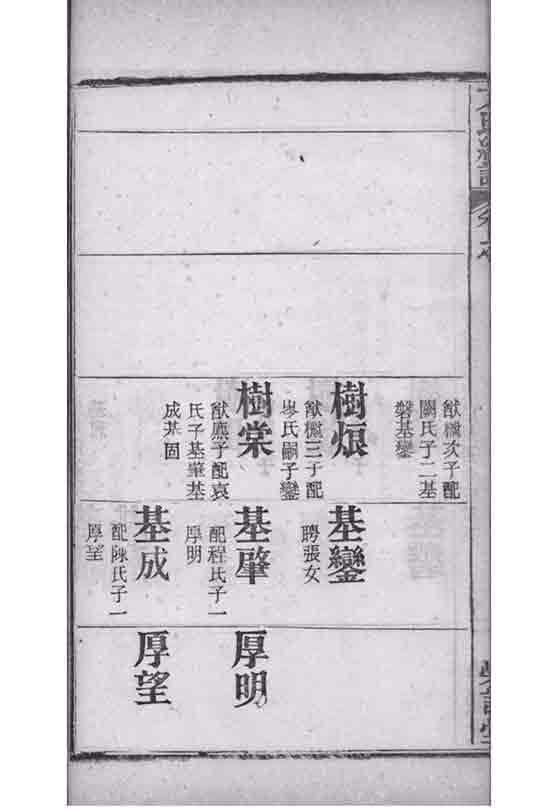 猷次子配
關氏子二基
磐基鑾
樹烺
猷三子配
岑氏嗣子鑾
樹棠
猷應子配袁
氏子基肈基
成基固
基鑾
聘張女
基肈
配程氏子一
厚明
基成
配陳氏子一
厚望
厚明
厚望